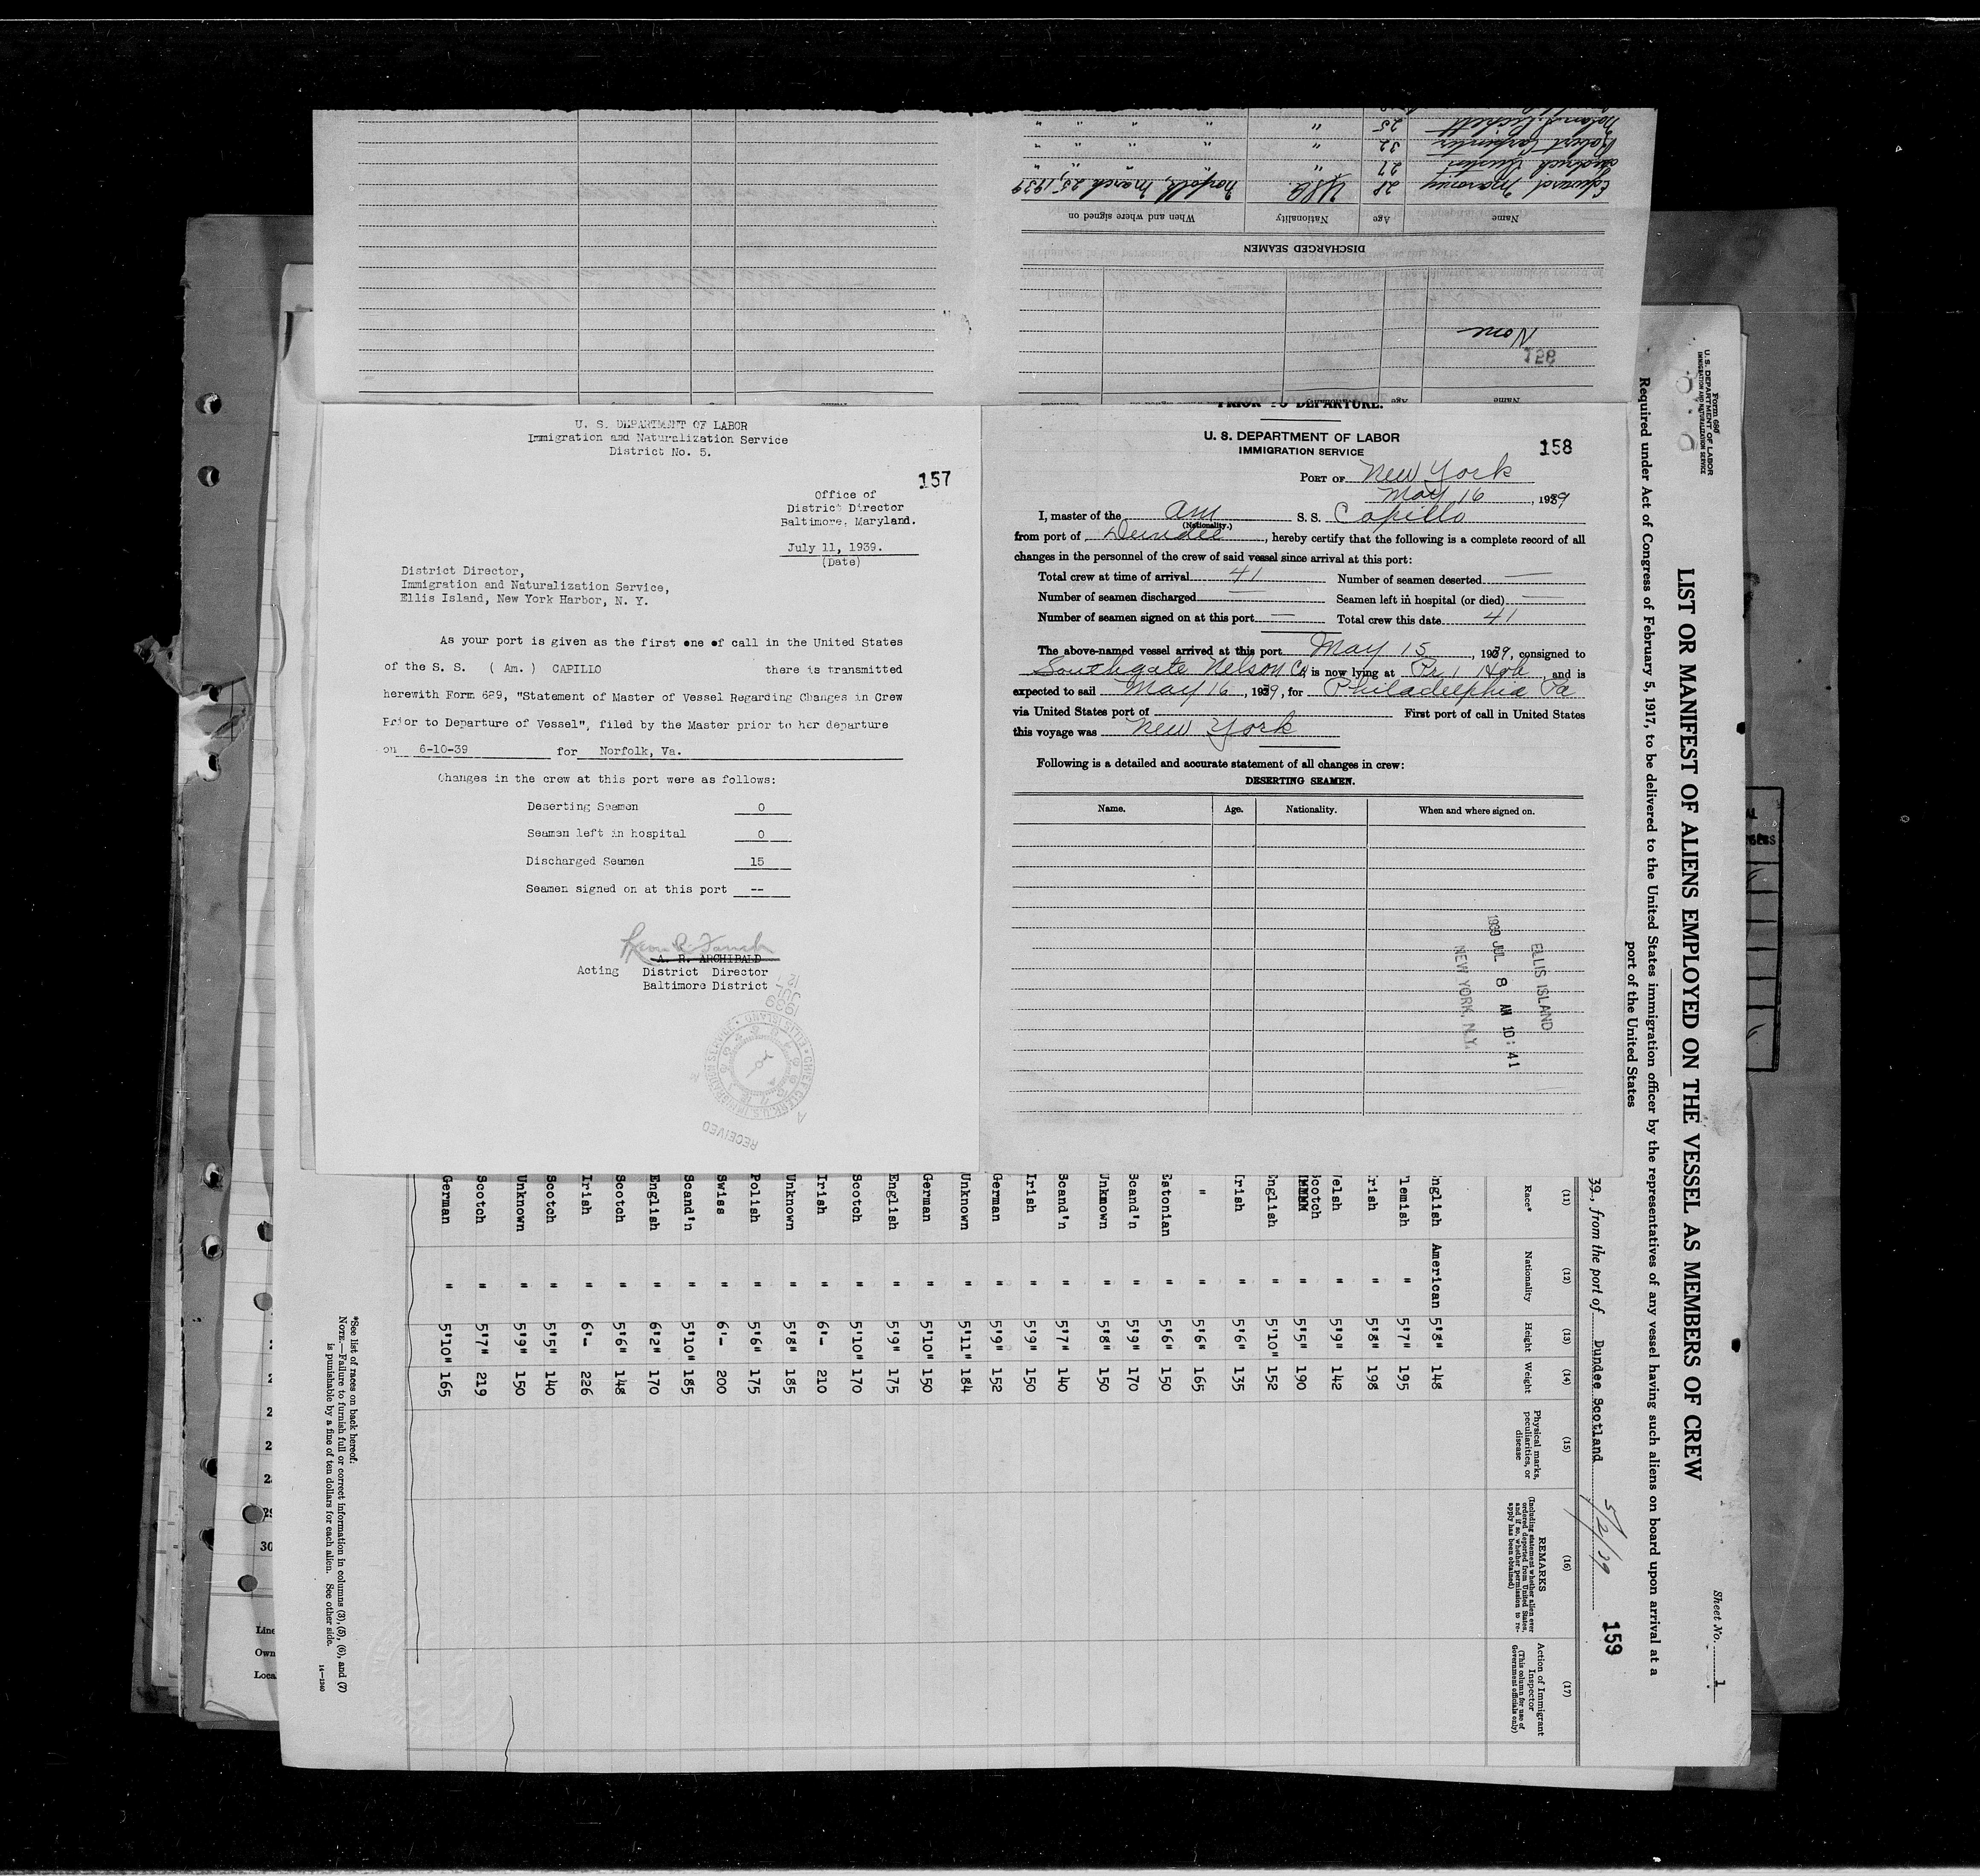 Name Age Nationality When and where signed on
Edward Maroney 28 USA. Norfolk, March 25, 1939
27 " " " "
Robert Carpenter 32 " " " "
25 " " " "
DISCHARGED SEAMEN
None
128
U. S. DEPARTMENT OF LABOR
Immigration and Naturalization Service
District No. 5.
157
Office of
District Director
Baltimore, Maryland.
July 11, 1939.
(Date)
District Director,
Immigration and Naturalization Service,
Ellis Island, New York Harbor, N. Y.
As your port is given as the first one of call in the United States
of the S. S. ( Am. ) CAPILLO there is transmitted
herewith Form 689, "Statement of Master of Vessel Regarding Changes in Crew
Prior to Departure of Vessel", filed by the Master prior to her departure
on 6-10-39 for Norfolk, Va.
Changes in the crew at this port were as follows:
Deserting Seamen 0
Seamen left in hospital 0
Discharged Seamen 15
Seamen signed on at this port --
A. R. ARCHIBALD
Acting District Director
Baltimore District
1939
JUL
12
CHIEF CLERK, U.S. IMMIGRATION SERVICE • ELLIS ISLAND •
RECEIVED
PRIOR TO DEPARTURE.
U. S. DEPARTMENT OF LABOR
IMMIGRATION SERVICE
158
PORT OF New York
May 16, 1939
I, master of the Am S. S. Capillo
(Nationality.)
from port of Dundee, hereby certify that the following is a complete record of all
changes in the personnel of the crew of said vessel since arrival at this port:
Total crew at time of arrival 41 Number of seamen deserted —
Number of seamen discharged — Seamen left in hospital (or died) —
Number of seamen signed on at this port — Total crew this date 41
The above-named vessel arrived at this port May 15, 1939, consigned to
Southgate Nelson Co, is now lying at Pr 1 Hob, and is
expected to sail May 16, 1939, for Philadelphia Pa
via United States port of First port of call in United States
this voyage was New York
Following is a detailed and accurate statement of all changes in crew:
DESERTING SEAMEN.
Name. Age. Nationality. When and where signed on.
ELLIS ISLAND
1939 JUL 8 AM 10:41
NEW YORK, N.Y.
Form 680
U. S. DEPARTMENT OF LABOR
IMMIGRATION AND NATURALIZATION SERVICE
Sheet No. 1
LIST OR MANIFEST OF ALIENS EMPLOYED ON THE VESSEL AS MEMBERS OF CREW
Required under Act of Congress of February 5, 1917, to be delivered to the United States immigration officer by the representatives of any vessel having such aliens on board upon arrival at a
port of the United States
39, from the port of Dundee Scotland 5/2/39
159
(11) (12) (13) (14) (15) (16) (17)
Race* Nationality Height Weight Physical marks, peculiarities, or disease REMARKS (Including statement whether alien ever ordered deported from United States, and if so, whether permission to reapply has been obtained) Action of Immigrant Inspector (This column for use of Government officials only)
nglish American 5'8" 148
lemish " 5'7" 195
rish " 5'8" 198
elsh " 5'9" 142
Scotch " 5'5" 190
nglish " 5'10" 152
Irish " 5'6" 135
" " 5'6" 165
Estonian " 5'6" 150
Scand'n " 5'9" 170
Unknown " 5'8" 150
Scand'n " 5'7" 140
Irish " 5'9" 150
German " 5'9" 152
Unknown " 5'11" 184
German " 5'10" 150
English " 5'9" 175
Scotch " 5'10" 170
Irish " 6'- 210
Unknown " 5'8" 185
Polish " 5'6" 175
Swiss " 6'- 200
Scand'n " 5'10" 185
English " 6'2" 170
Scotch " 5'6" 148
Irish " 6'- 226
Scotch " 5'5" 140
Unknown " 5'9" 150
Scotch " 5'7" 219
German " 5'10" 165
*See list of races on back hereof.
NOTE.—Failure to furnish full or correct information in columns (3), (5), (6), and (7)
is punishable by a fine of ten dollars for each alien. See other side.
14—1240
30
Line
Own
Loca